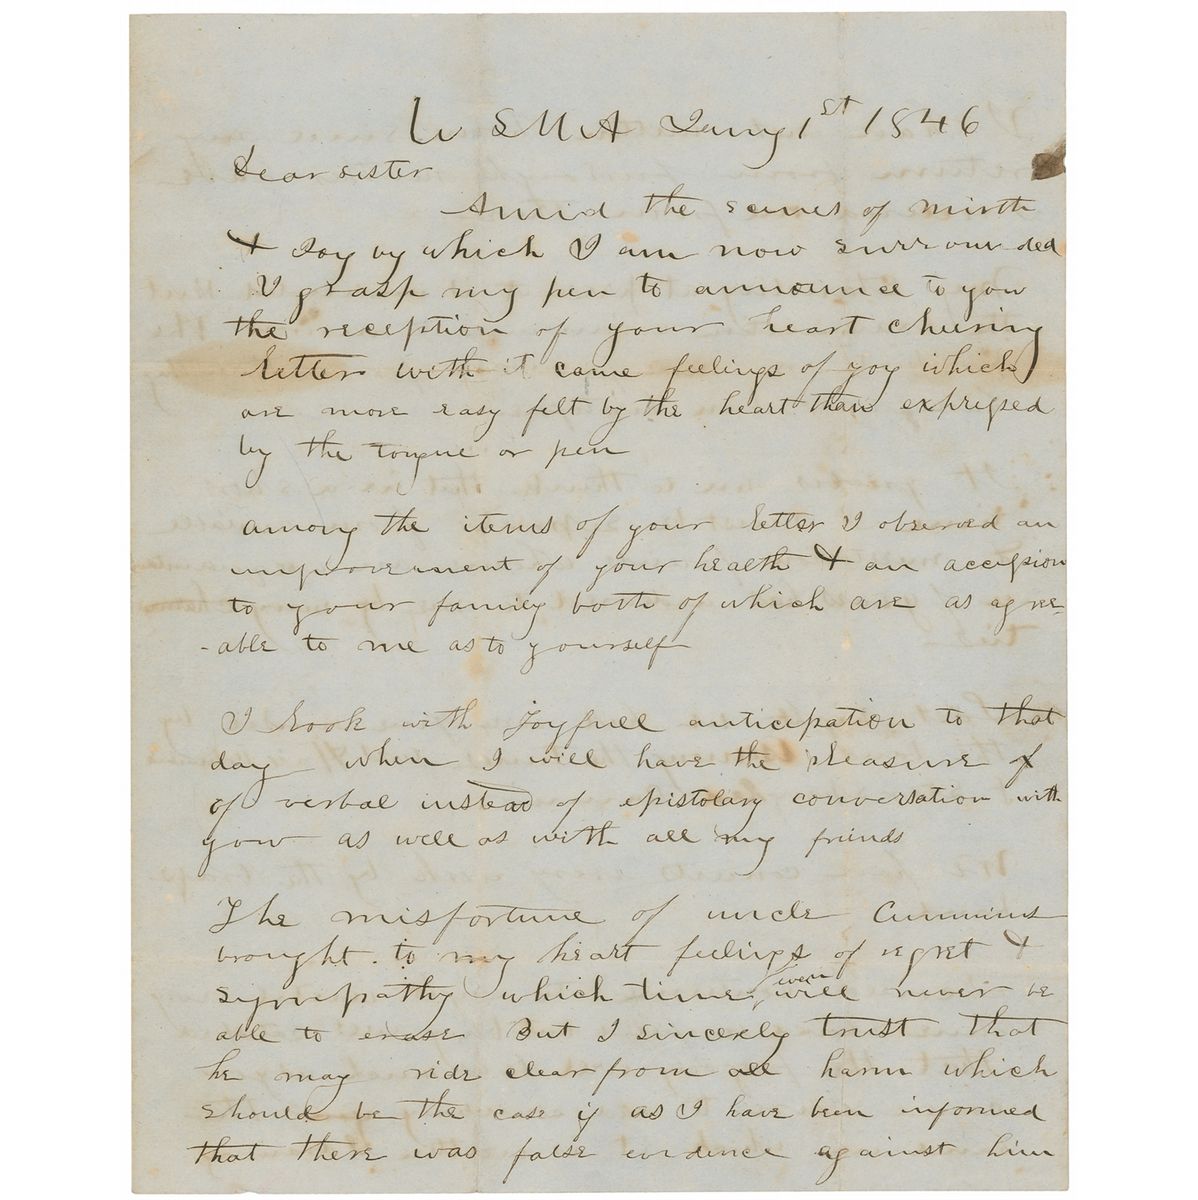 W S M A Jany 1st 1846
Dear sister
Amid the scenes of mirth
& Joy by which I am now surrounded
I grasp my pen to announce to you
the reception of your heart cheering
letter with it came feelings of joy which
are more easy felt by the heart than expressed
by the tongue or pen
among the items of your letter I observed an
improvement of your health & an accession
to your family both of which are as agre-
-able to me as to yourself
I look with Joyfull anticipation to that
day when I will have the pleasure of
of verbal instead of epistolary conversation with
you as well as with all my friends
The misfortune of uncle Cummins
brought to my heart feelings of regret &
sympathy which time even will never be
able to erase But I sincerely trust that
he may ride clear from all harm which
should be the case if as I have been informed
that there was false evidence against him